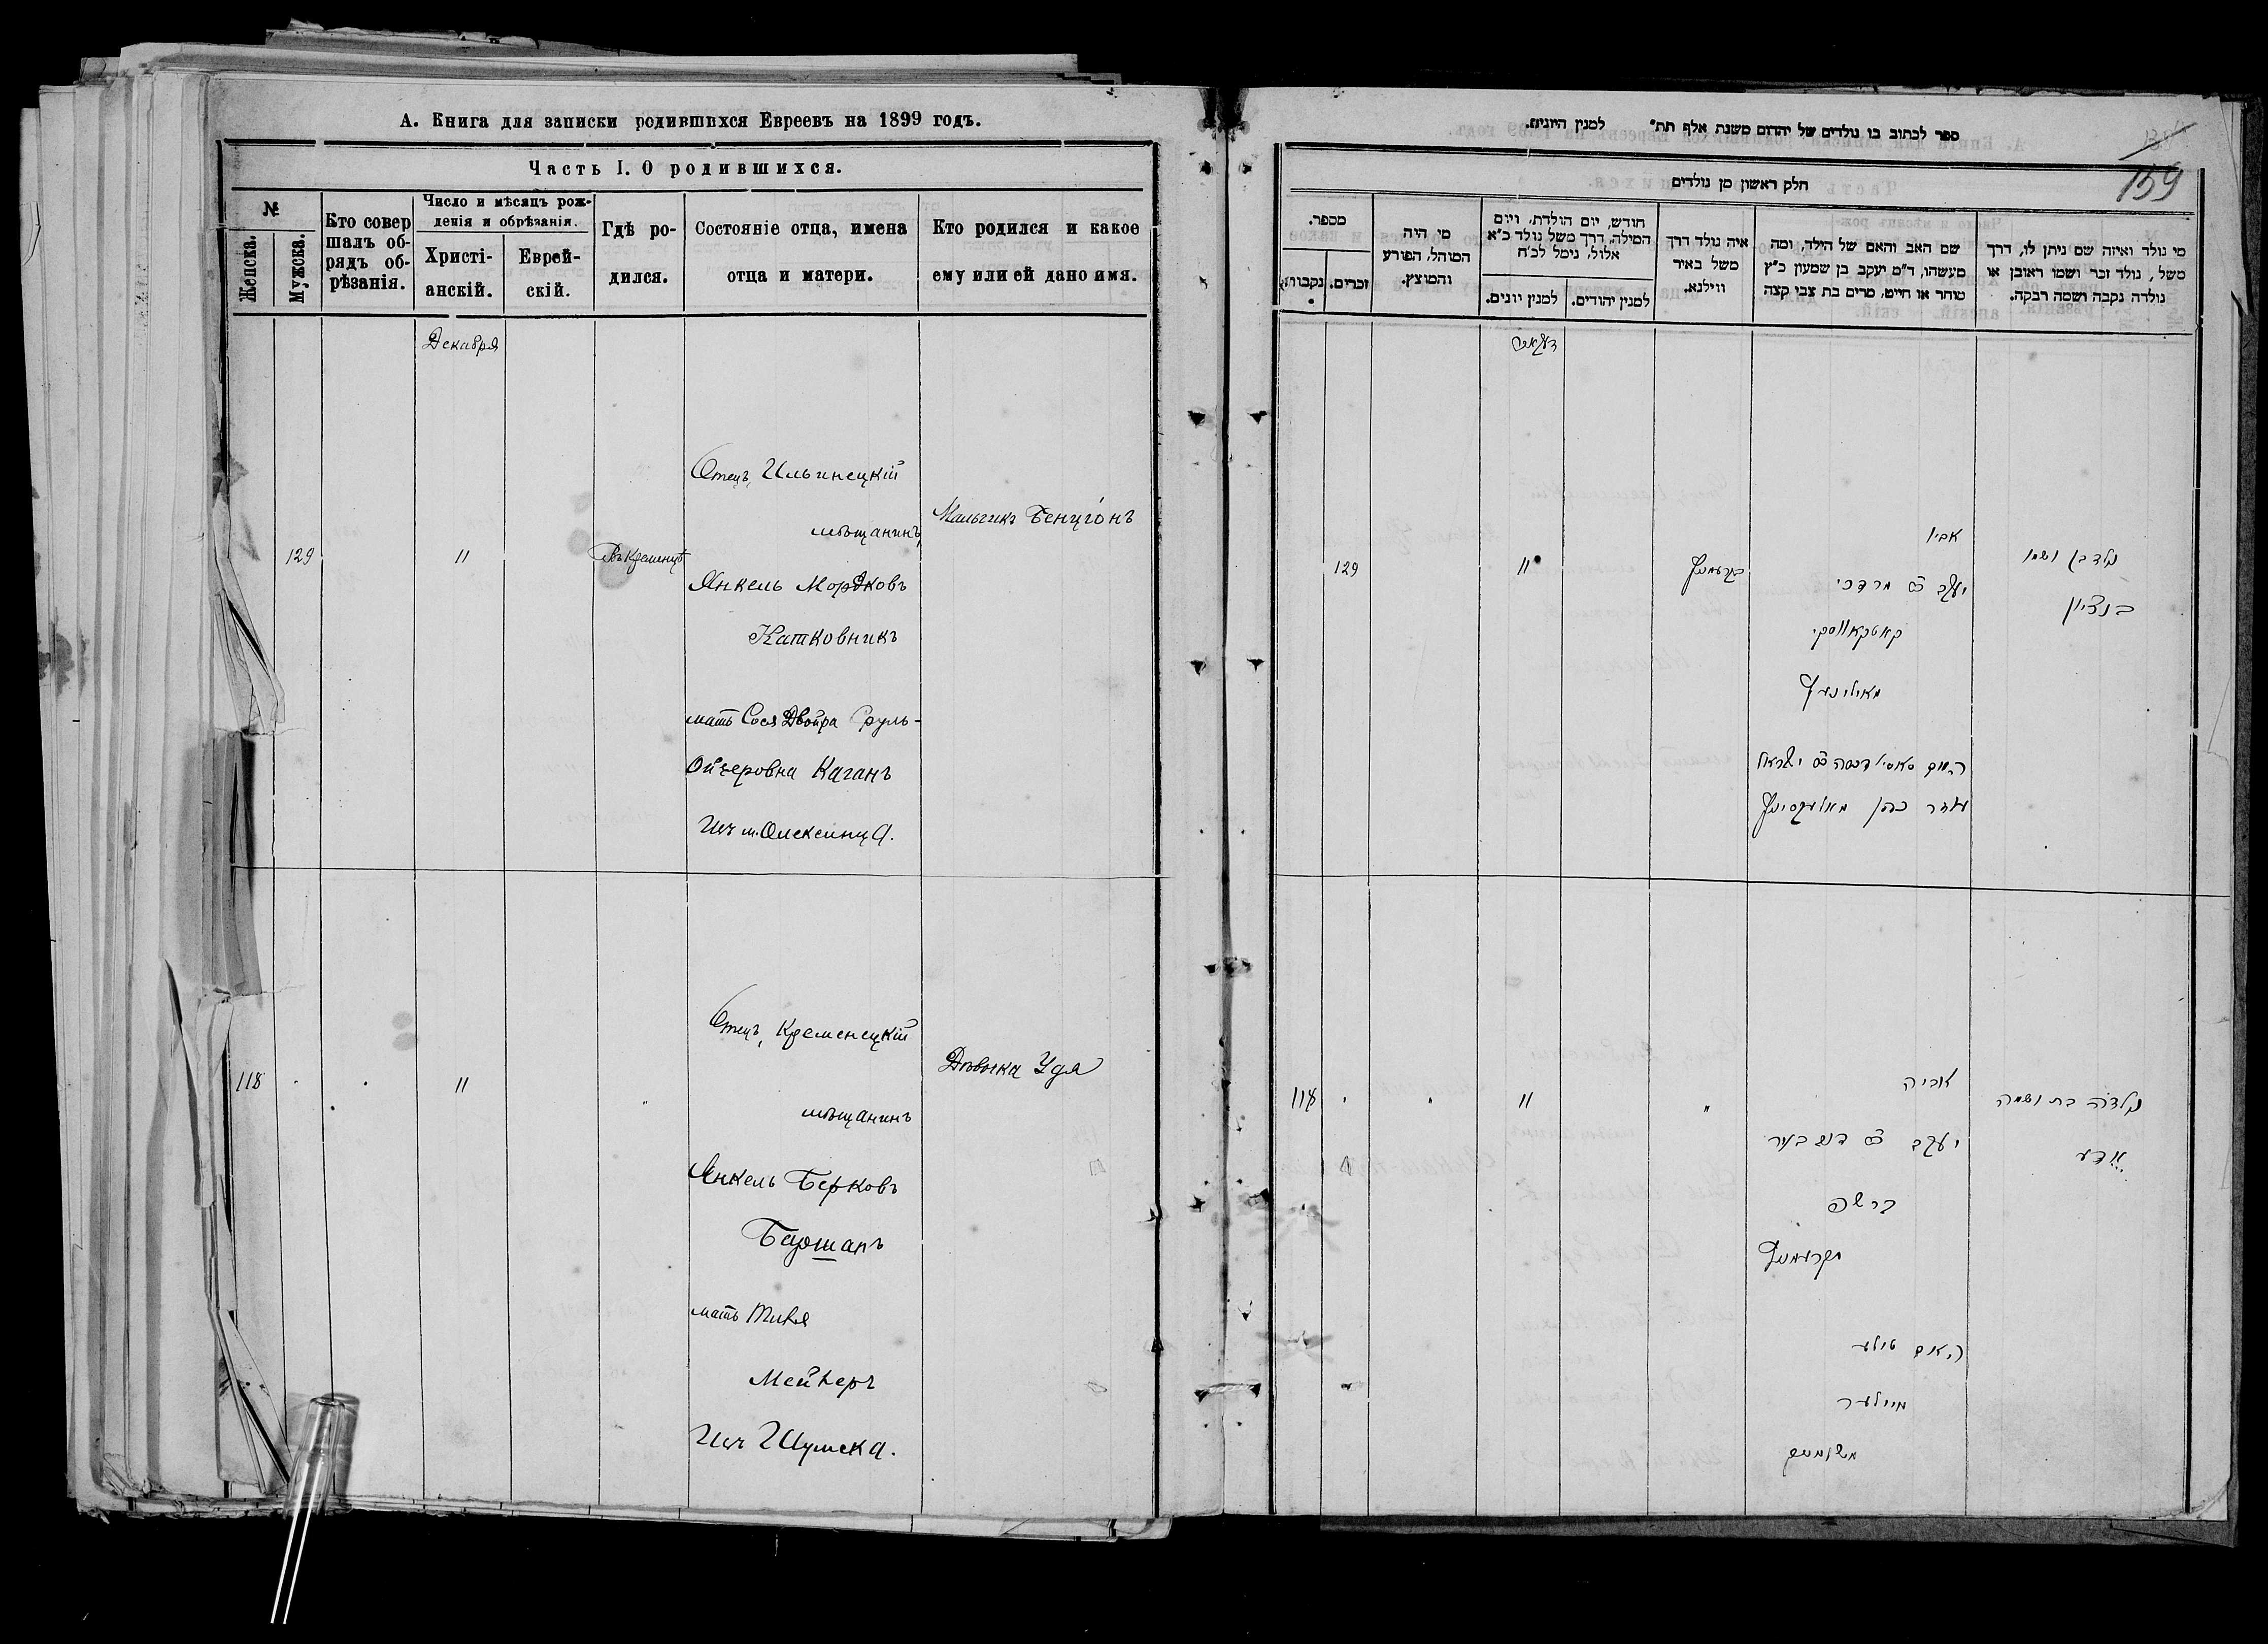 А. Книга для записки родившихся Евреевъ на 1899 годъ.
Часть I. О родившихся.
№
Женска.
Мужска.
Кто совер
шалъ об-
рядъ об-
рѣзанія.
Число и мѣсяцъ рож-
денія и обрѣзанія.
Христі-
анскій.
Еврей-
скій.
Гдѣ ро-
дился.
Состояніе отца, имена
отца и матери.
Кто родился и какое
ему или ей дано имя.
Декабря
129
11
Въ Кременцѣ
Отецъ, Ильинецкій
мѣщанинъ,
Янкель Мордковъ
Катковникъ
мать Сося Двойра Сруль-
Ойзеровна Каганъ
Изъ м. Олексинца.
Мальчикъ Бенціонъ
118
11
"
Отецъ, Кременецкій
мѣщанинъ
Янкель Берковъ
Баршапъ
мать
Изъ Шумска.
Дѣвочка Удя
ספר לכתוב בו נולדים של יהדום משנת אלף תת" למנין היונים.
159
חלק ראשון מן נולדים
מספר.
נקבות.
זכרים.
מי היה
המוהל, הפורע
והמוצץ.
חודש, יום הולדת, ויום
המילה, דרך משל נולד כ"א
אלול, נימל לכ"ח
למנין יונים.
למנין יהודים.
איה נולד דרך
משל באיר
ווילנא.
שם האב והאם של הילד, ומה
מעשהו, ד"מ יעקב בן שמעון כ"ץ
סוחר או חייט, מרים בת צבי קצה
מי נולד ואיזה שם ניתן לו, דרך
משל, נולד זכר ושמו ראובן או
נולדה נקבה ושמה רבקה.
129
11
אביו
יעקב מרדכי
קאטקאווסקי
מאילינעץ
האם
נולד בן ושמו
בנציון
118
11
"
אביה
יעקב
ברשפ
מקרעמעניץ
האם
משומסק
נולדה בת ושמה
אידע